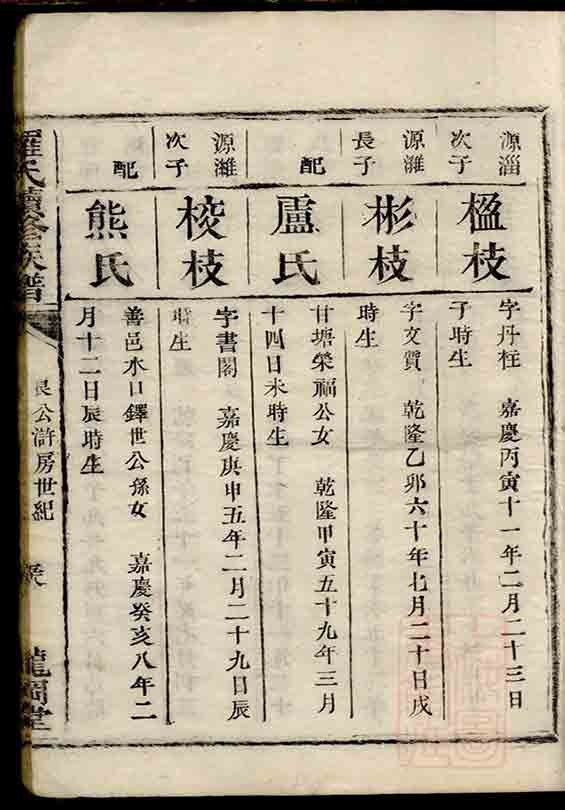 源淄
次子
楹枝
字丹柱　嘉慶丙寅十一年二月二十三日
子時生
源濰
長子
彬枝
字文質　乾隆乙卯六十年七月二十日戌
時生
配
盧氏
甘塘榮福公女　乾隆甲寅五十九年三月
十四日未時生
源濰
次子
校枝
字書閣　嘉慶庚申五年二月二十九日辰
時生
配
熊氏
善邑水口鐸世公孫女　嘉慶癸亥八年二
月十二日辰時生
羅氏續修族譜
良公滸房世紀
龍岡堂